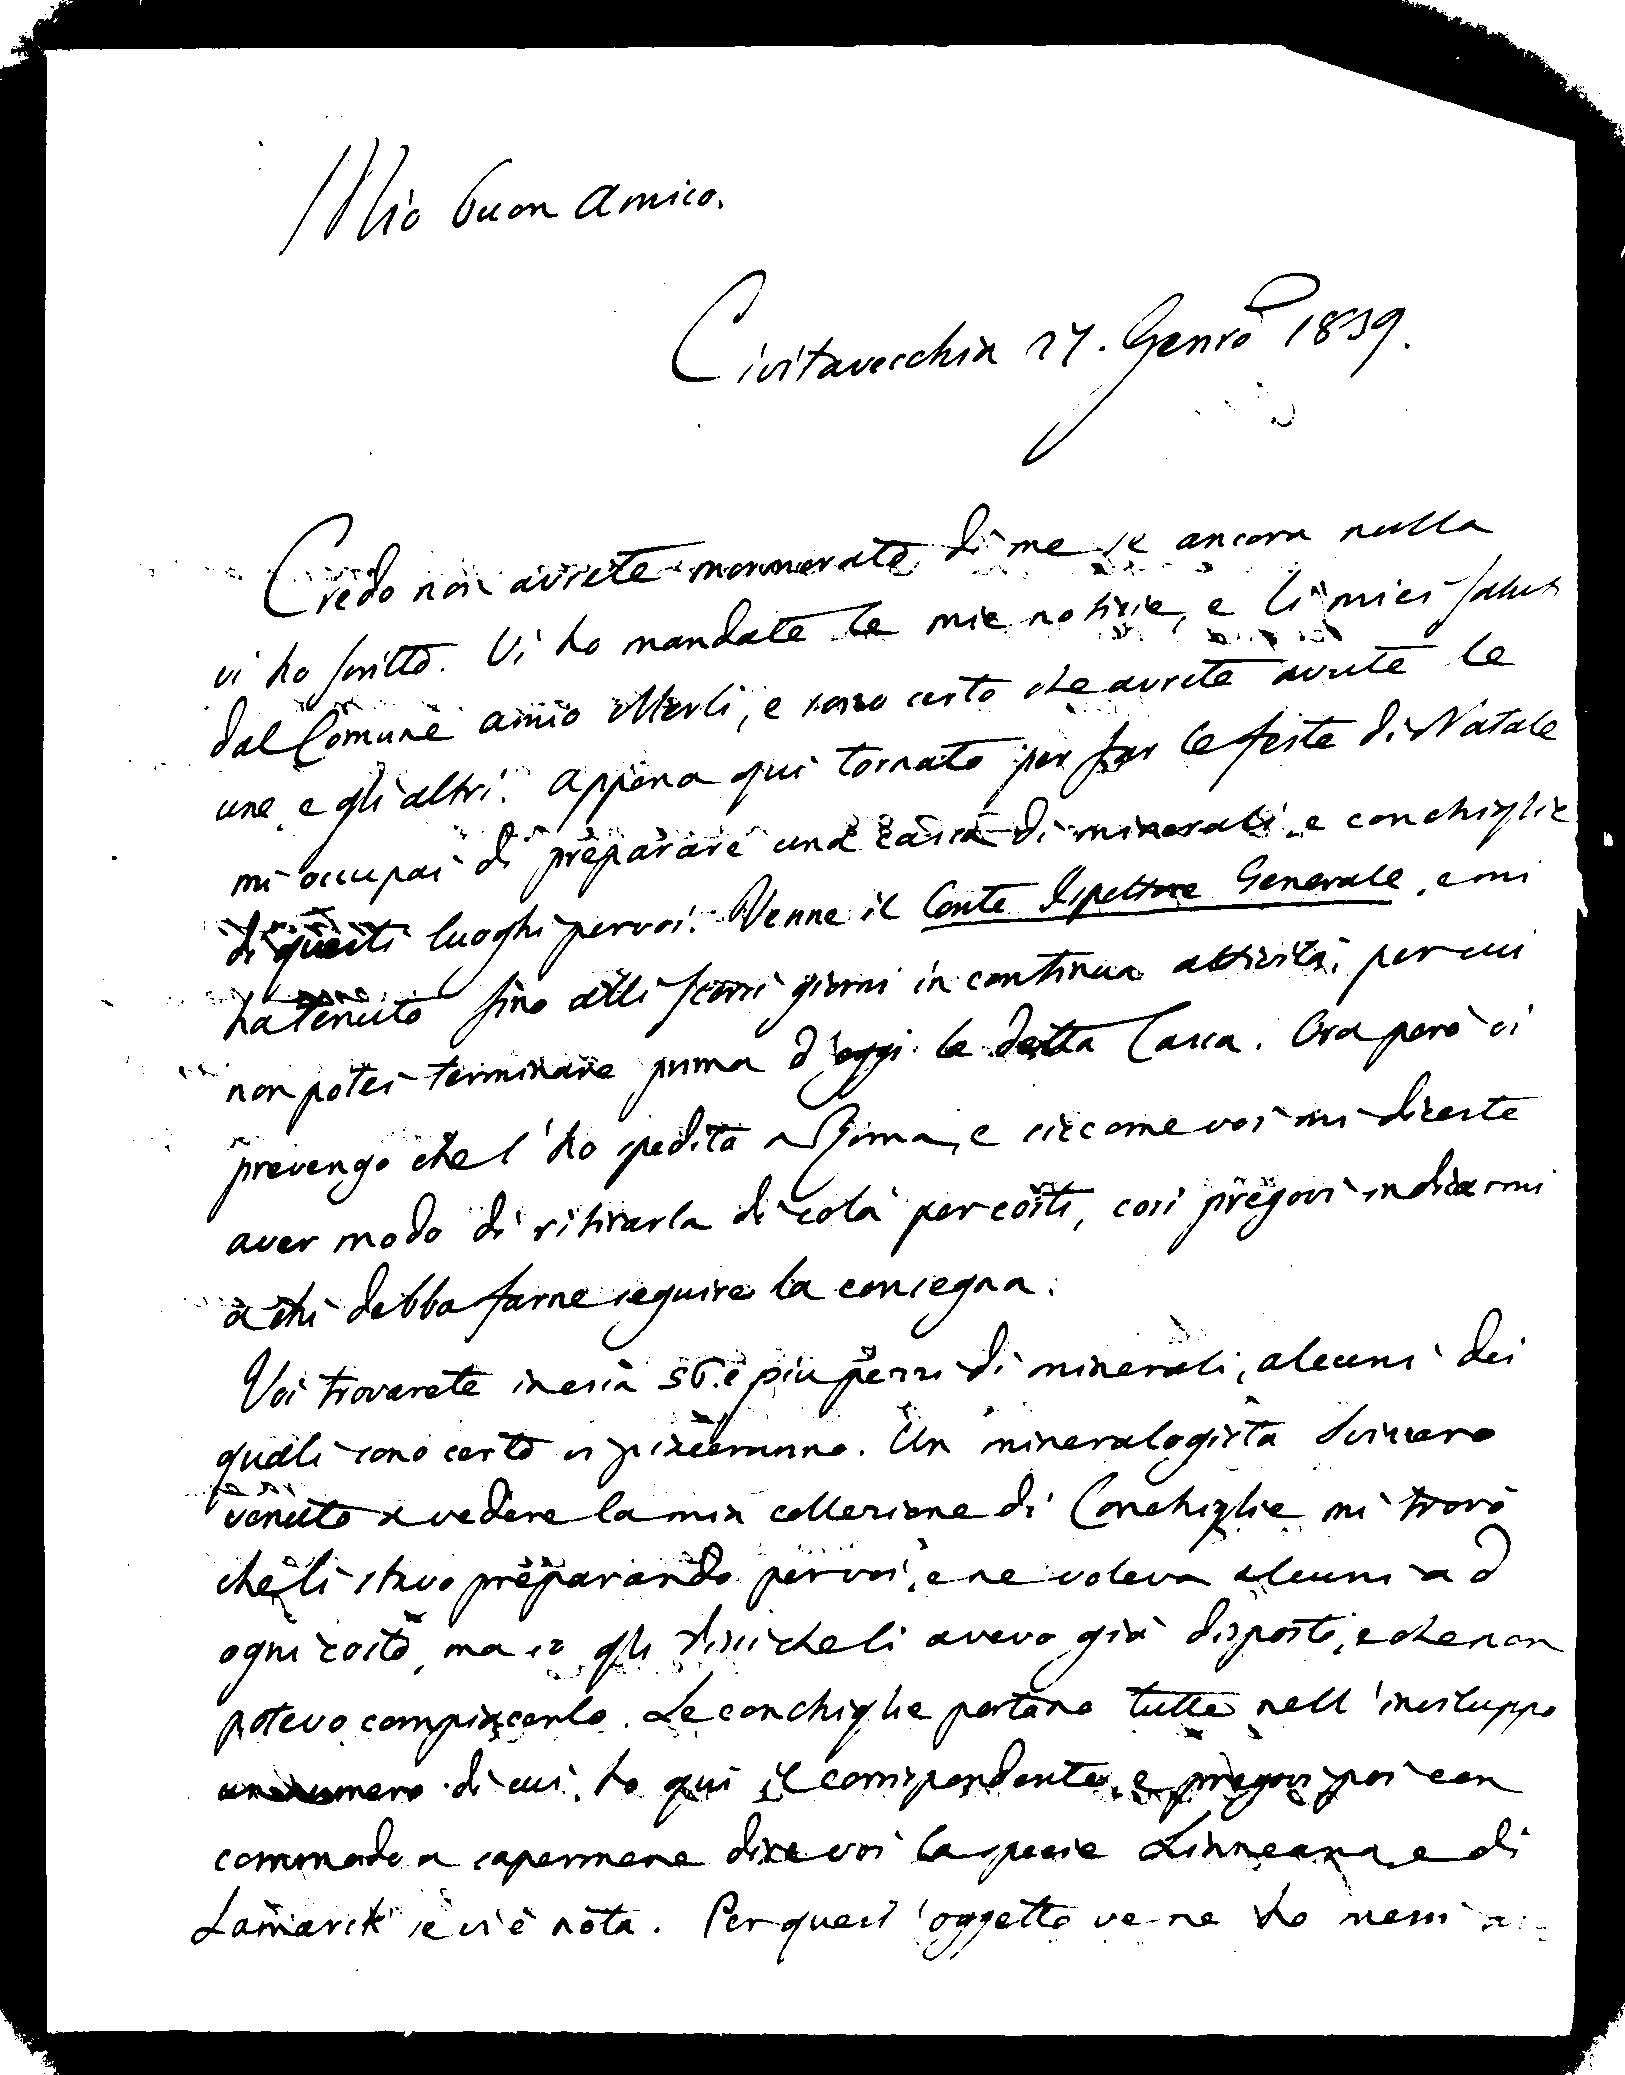 Mio buon Amico.
Civitavecchia 27. Genro 1839.
Credo non avrete mormorato di me se ancora nulla
vi ho scritto. Vi ho mandate le mie notizie, e li miei saluti
dal Comune amico Merli, e sono certo che avrete avute le
une, e gli altri. Appena qui tornato per far le feste di Natale
mi occupai di preparare una cassa di minerali e conchiglie
di questi luoghi per voi. Venne il Conte Ispettore Generale, e mi
ha tenuto fino alli scorsi giorni in continua attività, per cui
non potei terminare prima d'oggi la detta Cassa. Ora però vi
prevengo che l'ho spedita a Roma, e siccome voi mi diceste
aver modo di ritirarla di colà per costì, così pregovi indicarmi
a chi debba farne seguire la consegna.
Voi troverete in essa 56. e più pezzi di minerali, alcuni dei
quali sono certo vi piaceranno. Un mineralogista Svizzero
venuto a vedere la mia collezione di Conchiglie mi trovò
che li stavo preparando per voi, e ne voleva alcuni ad
ogni costo, ma io gli dissi che li avevo già disposti, e che non
potevo compiacerlo. Le conchiglie portano tutte nell'inviluppo
un numero di cui ho qui il corrispondente, e pregovi poi con
commodo a sapermene dire voi la specie Linneana, e di
Lamarck se vi è nota. Per quest'oggetto ve ne ho messi